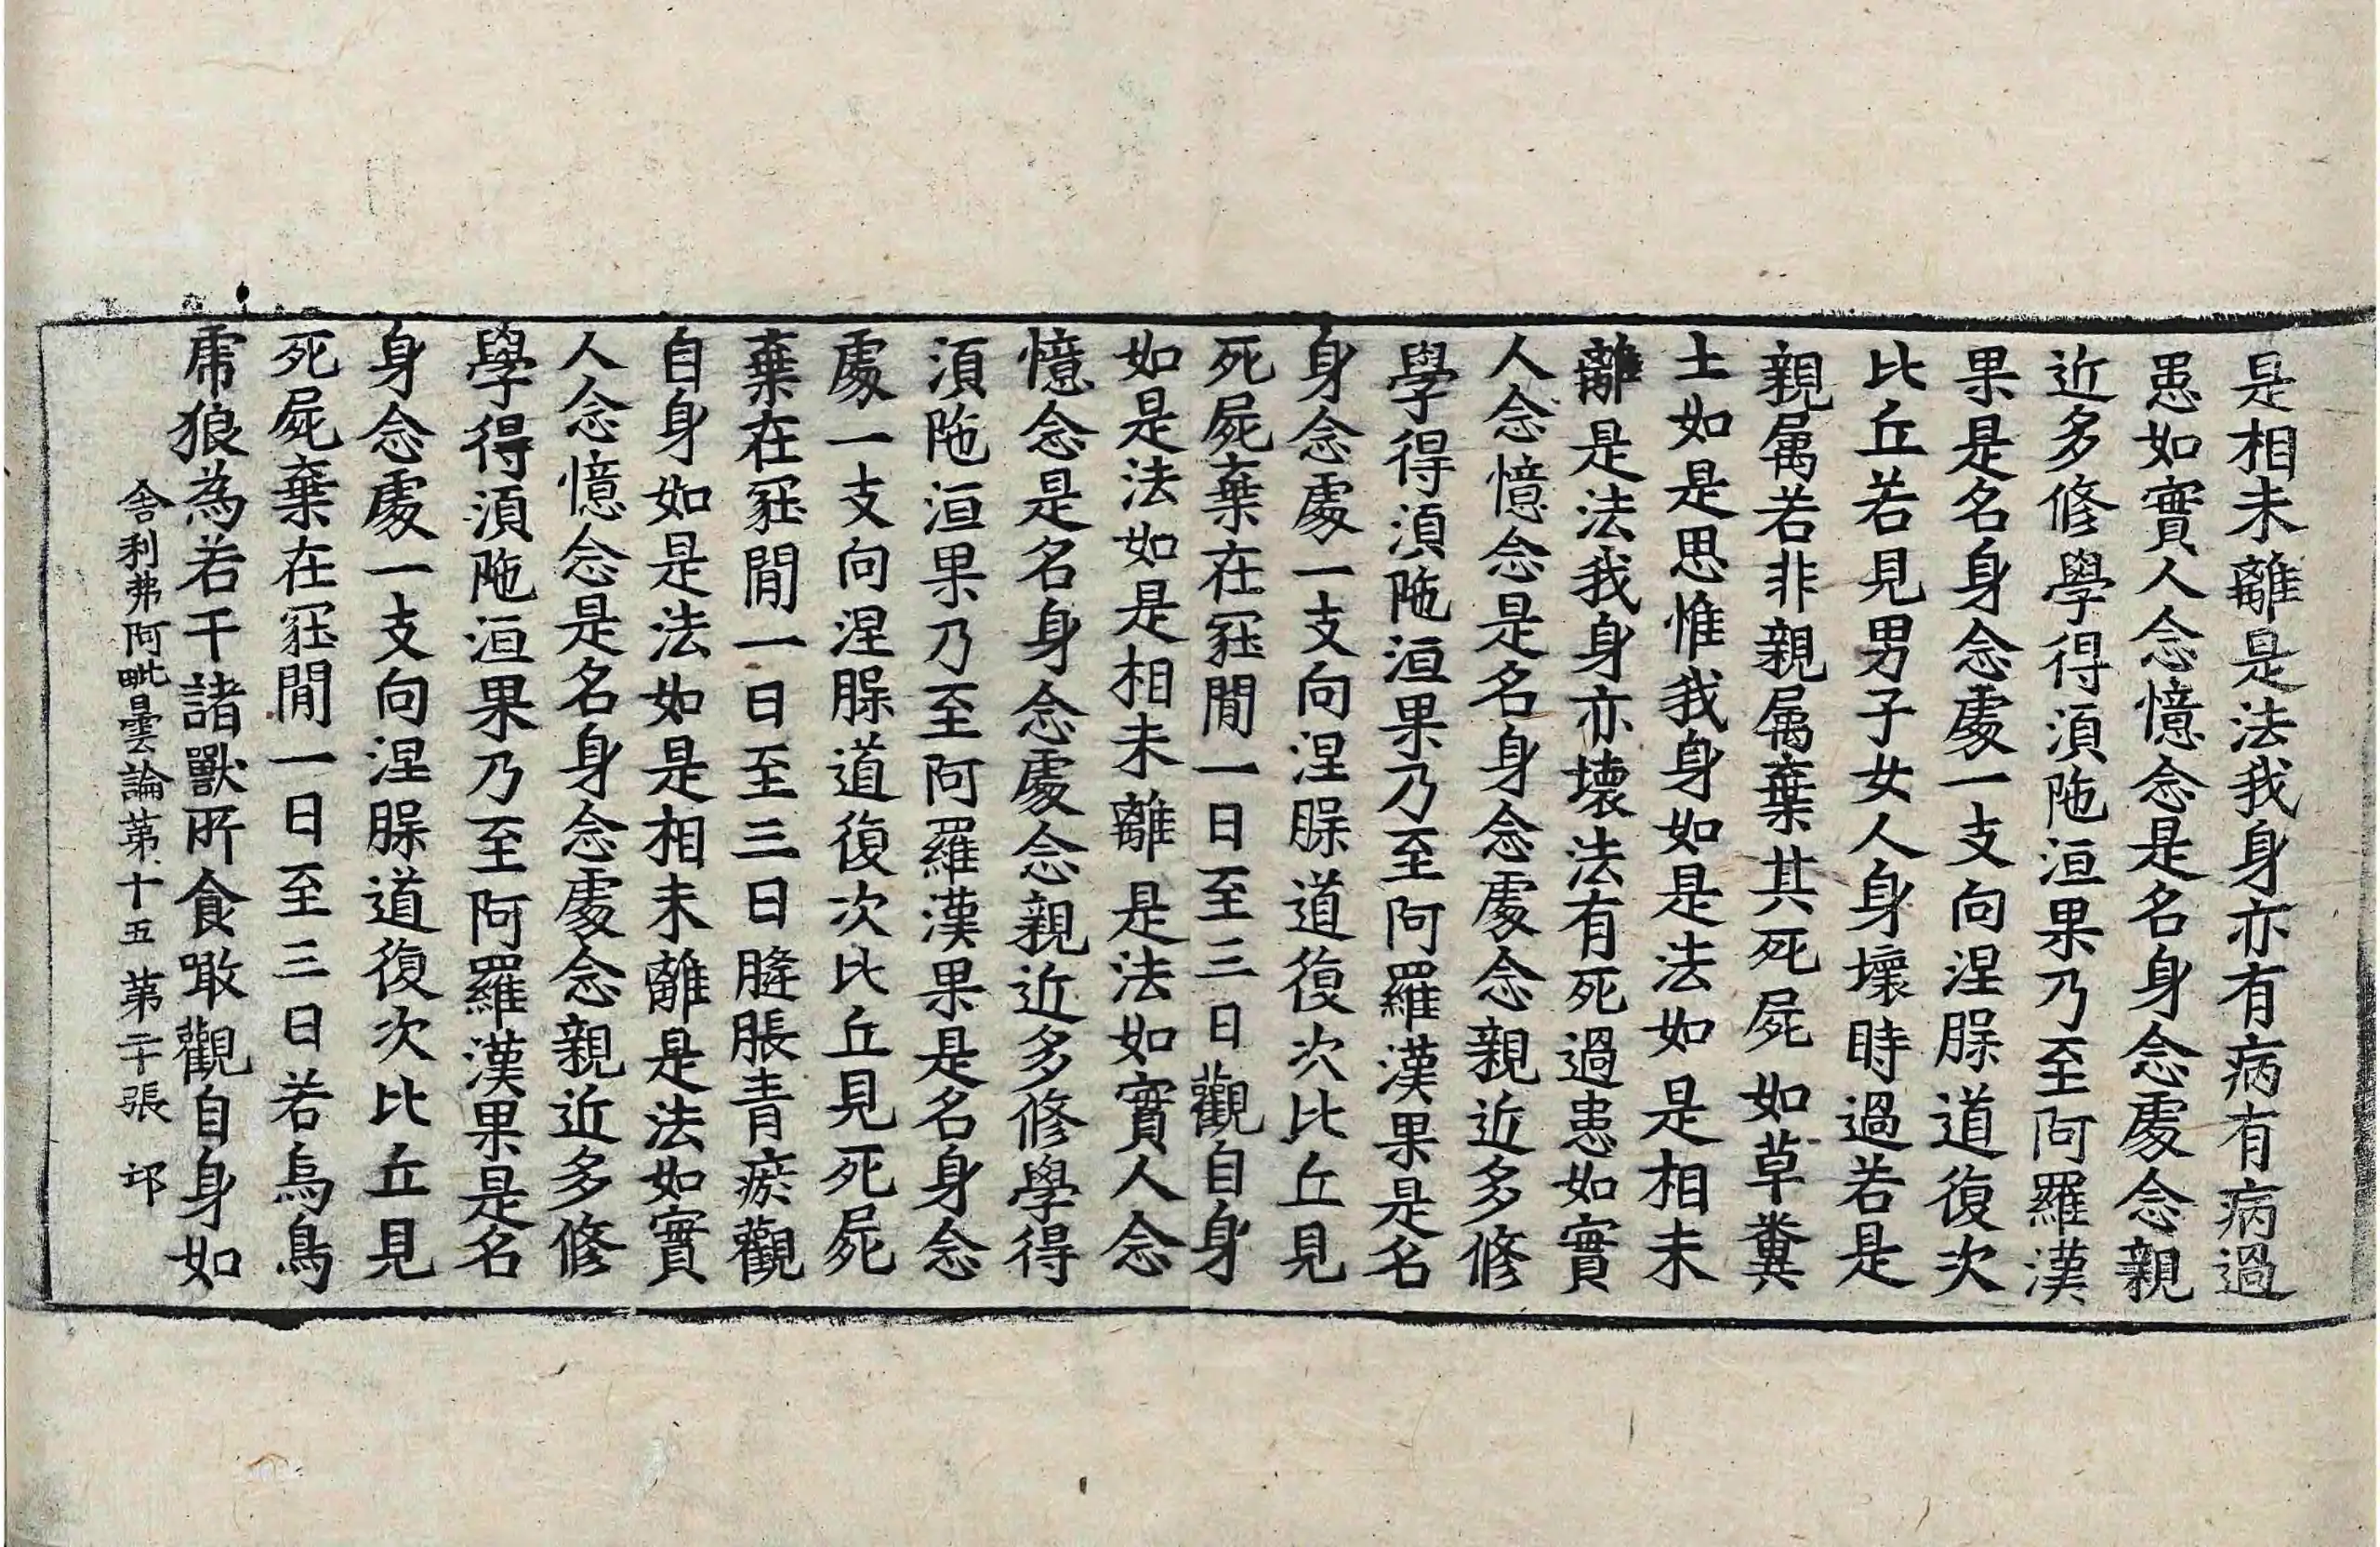 是相未離是法我身亦有病有病過
患如實人念憶念是名身念處念親
近多修學得湏陁洹果乃至阿羅漢
果是名身念處一支向涅𦙁道復次
比丘若見男子女人身壞時過若是
親属若非親属棄其死屍如草糞
土如是思惟我身如是法如是相未
離是法我身亦壞法有死過患如實
人念憶念是名身念處念親近多修
學得湏陁洹果乃至阿羅漢果是名
身念處一支向涅𦙁道復次比丘見
死屍棄在冡閒一日至三日觀自身
如是法如是相未離是法如實人念
憶念是名身念處念親近多修學得
湏陁洹果乃至阿羅漢果是名身念
處一支向涅𦙁道復次比丘見死屍
棄在冡閒一日至三日膖脹青瘀觀
自身如是法如是相未離是法如實
人念憶念是名身念處念親近多修
學得湏陁洹果乃至阿羅漢果是名
身念處一支向涅𦙁道復次比丘見
死屍棄在冡閒一日至三日若烏鳥
虎狼為若干諸獸所食噉觀自身如
舍利弗阿毗曇論第十五 第二十張 邛